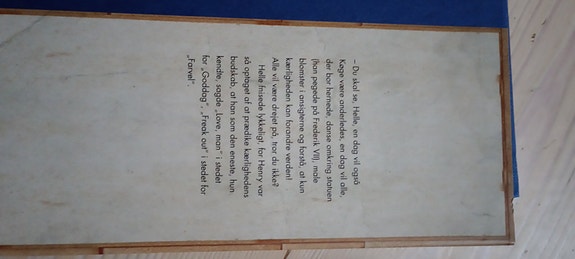 – Du skal se, Helle, en dag vil også
Køge være anderledes, en dag vil alle,
der bor hernede, danse omkring statuen
(han pegede på Frederik VII), male
blomster i ansigterne og forstå, at kun
kærligheden kan forandre verden!
Alle vil være drejet på, tror du ikke?
Helle fnisede lykkeligt, for Henry var
så optaget af at prædike kærlighedens
budskab, at han som den eneste, hun
kendte, sagde „Love, man" i stedet
for „Goddag". „Freak out" i stedet for
„Farvel"